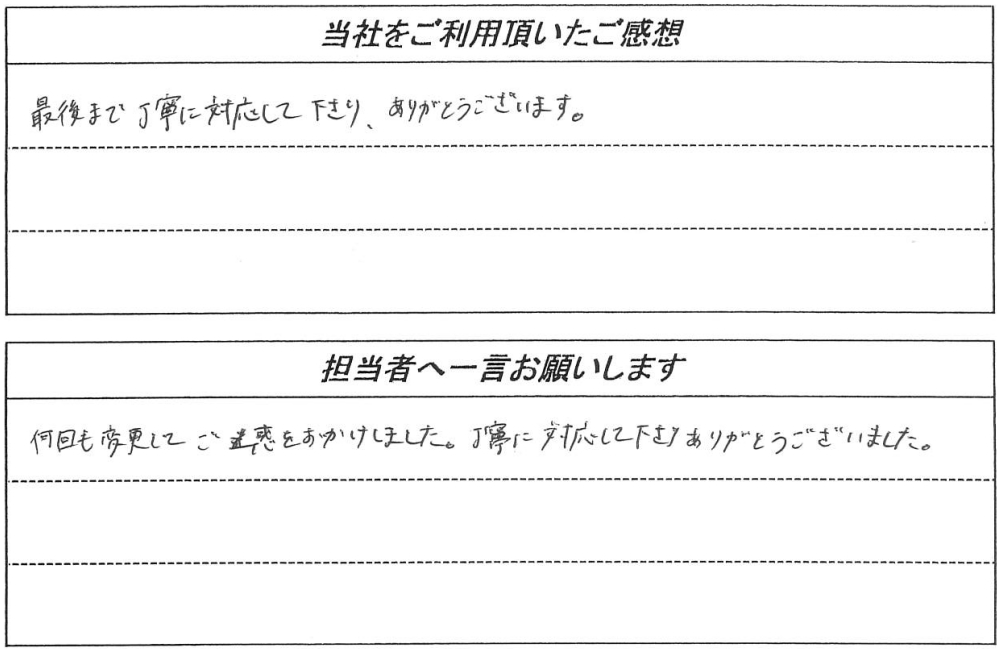 当社をご利用頂いたご感想
最後まで丁寧に対応して下さり、ありがとうございます。
担当者へ一言お願いします
何回も変更してご迷惑をおかけしました。丁寧に対応して下さりありがとうございました。